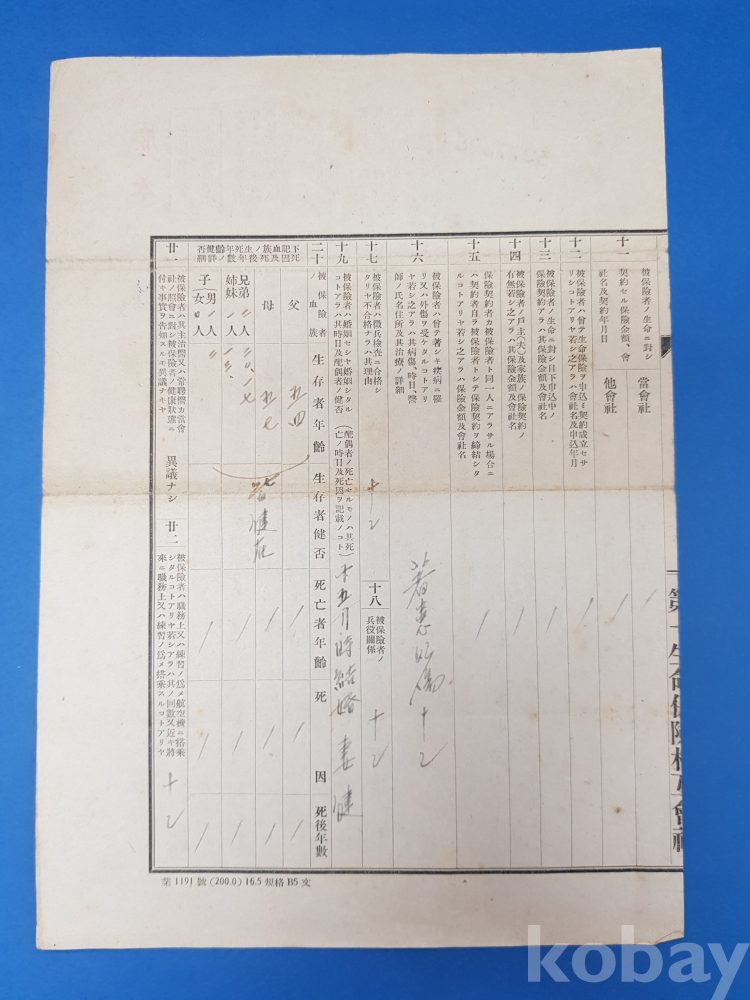 被保險者ノ生命ニ對シ
契約セル保險金額、會
社名及契約年月日
十一
當會社
他會社
十二
被保險者ハ曾テ生命保險ヲ申込ミ契約成立セサ
リシコトアリヤ若シ之アラハ會社名及申込年月
十三
被保險者ノ生命ニ對シ目下申込中ノ
保險契約アラハ其保險金額及會社名
十四
被保險者ノ戶主(夫)及家族ノ保險契約ノ
有無若シ之アラハ其保險金額及會社名
十五
保險契約者カ被保險者ト同一人ニアラサル場合ニ
ハ契約者自ラ被保險者トシテ保險契約ヲ締結シタ
ルコトアリヤ若シ之アラハ保險金額及會社名
十六
被保險者ハ曾テ著シキ疾病ニ罹
リ又ハ外傷ヲ受ケタルコトアリ
ヤ若シ之アラハ其病傷、時日、醫
師ノ氏名住所及其治療ノ詳細
十七
被保險者ハ徵兵檢査ニ合格シ
タリヤ不合格ナラハ其理由
十八
被保險者ノ
兵役關係
十九
被保險者ハ婚姻セシヤ婚姻シタル
コトアラハ其時日及配偶者ノ健否
(配偶者ノ死亡セルモノハ其死
亡ノ時日及死因ヲ記載ノコト)
十五月時結婚 妻健
二十
被保險者
ノ血族
生存者年齡
生存者健否
死亡者年齡
死因
死後年數
父
五四
母
五七
兄弟 人
姉妹 人
子(男 人
女 人
皆健在
廿一
被保險者ハ其主治醫又ハ常聘醫カ當會
社ノ照會ニ對シ被保險者ノ健康狀態ニ
付キ事實ヲ吿知スルモ異議ナキヤ
異議ナシ
廿二
被保險者ハ職務上又ハ練習ノ爲メ航空機ニ搭乘
シタルコトアリヤ若シアラハ其ノ回數又近キ將
來ニ職務上又ハ練習ノ爲メ搭乘スルコトアリヤ
第一生命保險相互會社
業1191號(200.0)16.5規格B5文
kobay